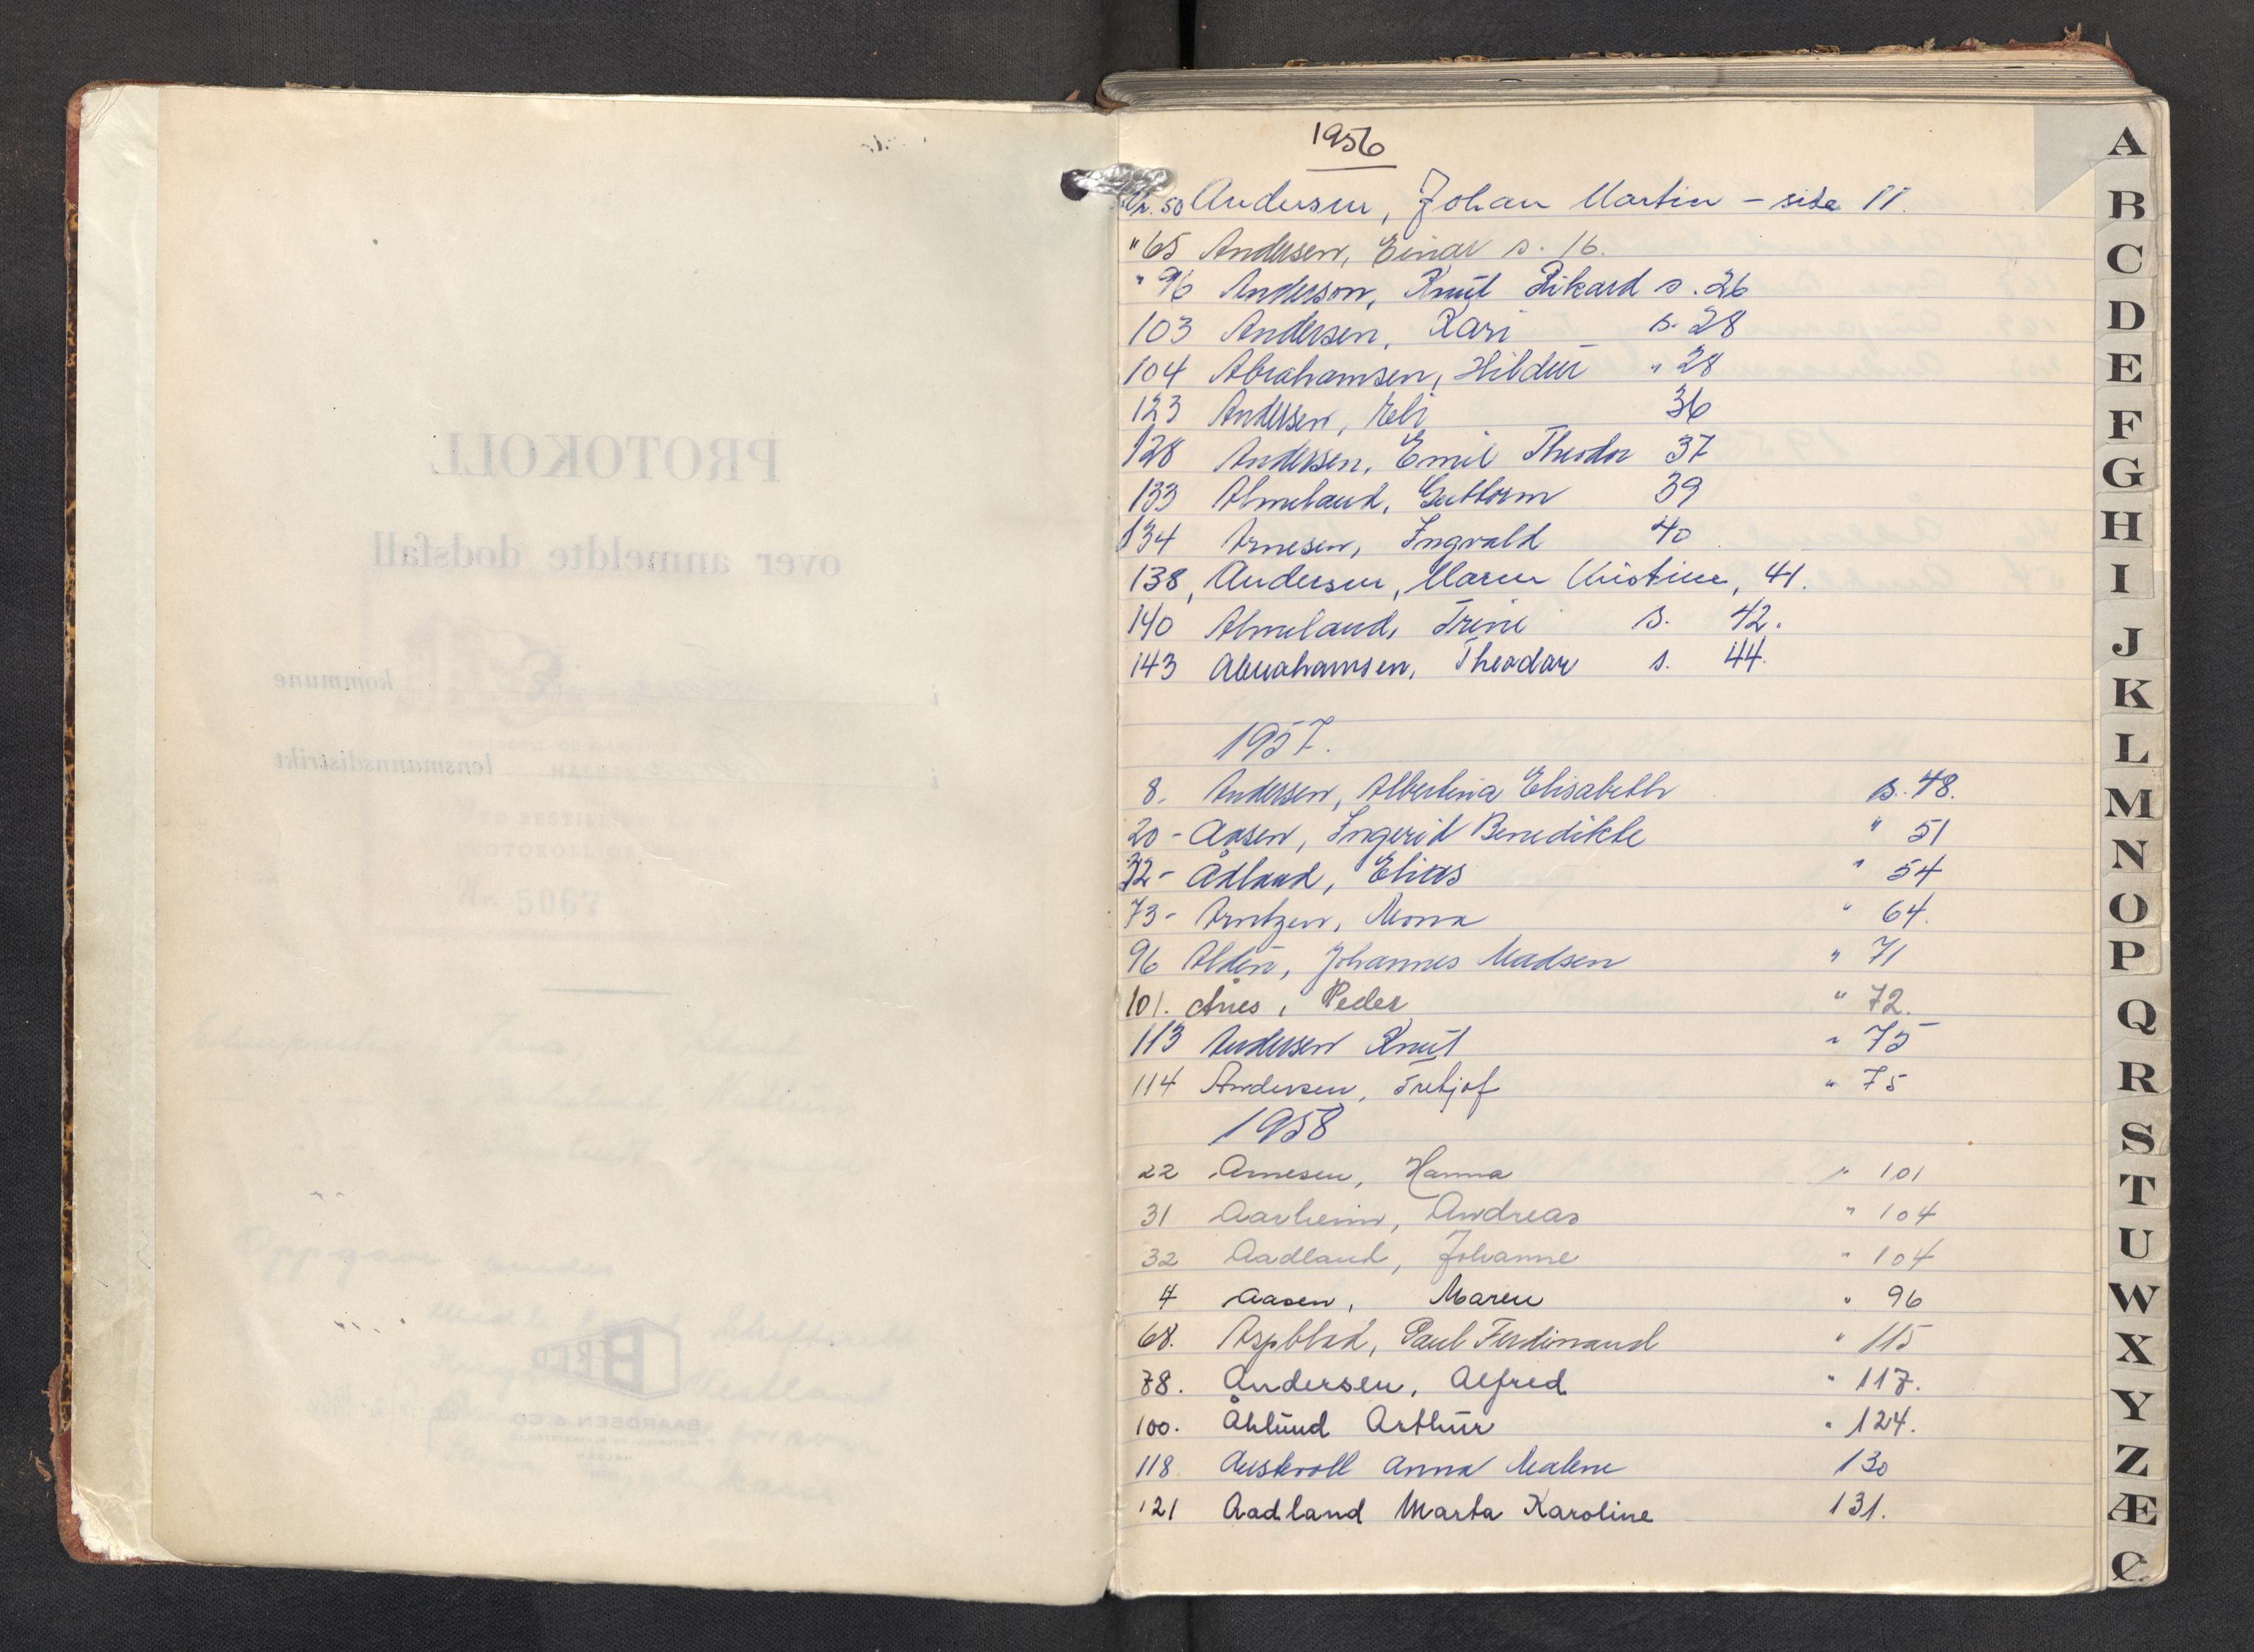 PROTOKOLL
over anmeldte dødsfall
i kommune
i lensmannsdistrikt
Nr. 5067
BAARDSEN & CO
1956
Nr. 50 Andersen, Johan Martin - side 11.
" 65 Andersen, Einar s. 16.
" 96 Anderson, Knut Rikard s. 26
103 Andersen, Kari s. 28
104 Abrahamsen, Hildur " 28
123 Andersen, Eli 36
128 Andersen, Emil Theodor 37
133 Almeland, Guttorm 39
134 Arnesen, Ingvald 40
138, Andersen, Maren Kristine, 41.
140 Almeland, Trine s. 42.
143 Abrahamsen, Theodor s. 44.
1957.
8. Andersen, Albertina Elisabeth s. 48.
20 - Aasen, Ingerid Benedikte " 51
32 - Ådland, Elias " 54
73 - Arntzen, Mona " 64.
96 Alden, Johannes Madsen " 71
101. Peder " 72.
113 Andersen Knut " 75
114 Andersen, Fretjof " 75
1958
22 Arnesen, Hanna " 101
31 Aarheim, Andreas " 104
32 Aadland, Johanne " 104
4 Aasen, Maren " 96
68. Aspblad, Paul Ferdinand " 115
78. Andersen, Alfred " 117.
100. Åhlund Arthur " 124.
118 Austvoll Anna Malene 130
121 Aadland Marta Karoline 131.
A
B
C
D
E
F
G
H
I
J
K
L
M
N
O
P
Q
R
S
T
U
W
X
Y
Z
Æ
Ø